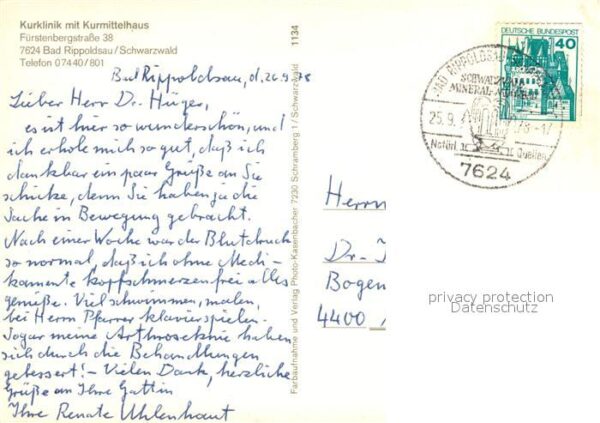 Kurklinik mit Kurmittelhaus
Fürstenbergstraße 38
7624 Bad Rippoldsau/Schwarzwald
Telefon 07440/801
Bad Rippoldsau, d. 26.9.78
Lieber Herr Dr. Hüger,
es ist hier so wunderschön, und
ich erhole mich so gut, daß ich
dankbar ein paar Grüße an Sie
schicke, denn Sie haben ja die
Sache in Bewegung gebracht.
Nach einer Woche war der Blutdruck
so normal, daß ich ohne Medi-
kamente kopfschmerzenfrei alles
genieße. Viel schwimmen, malen,
bei Herrn Pfarrer klavierspielen.
Sogar meine Arthroseknie haben
sich durch die Behandlungen
gebessert! - Vielen Dank, herzliche
Grüße an Ihre Gattin
Ihre Renate Uhlenhaut
1134
Farbaufnahme und Verlag Photo-Kasenbacher 7230 Schramberg 1/Schwarzwald
DEUTSCHE BUNDESPOST
40
BAD RIPPOLDSAU
SCHWARZWALD
MINERAL-
25.9.
78-17
Natürl.
Quellen
7624
Herrn
Dr.
Bogen
4400
privacy protection
Datenschutz